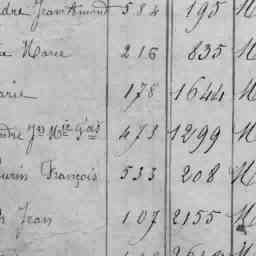 dre Jean Amand 584 195 M
a Marie 216 835 M
arie 178 1644 M
ndre Jn Mie Gas 473 1299 M
urin François 533 208 M
h Jean 107 2155 M